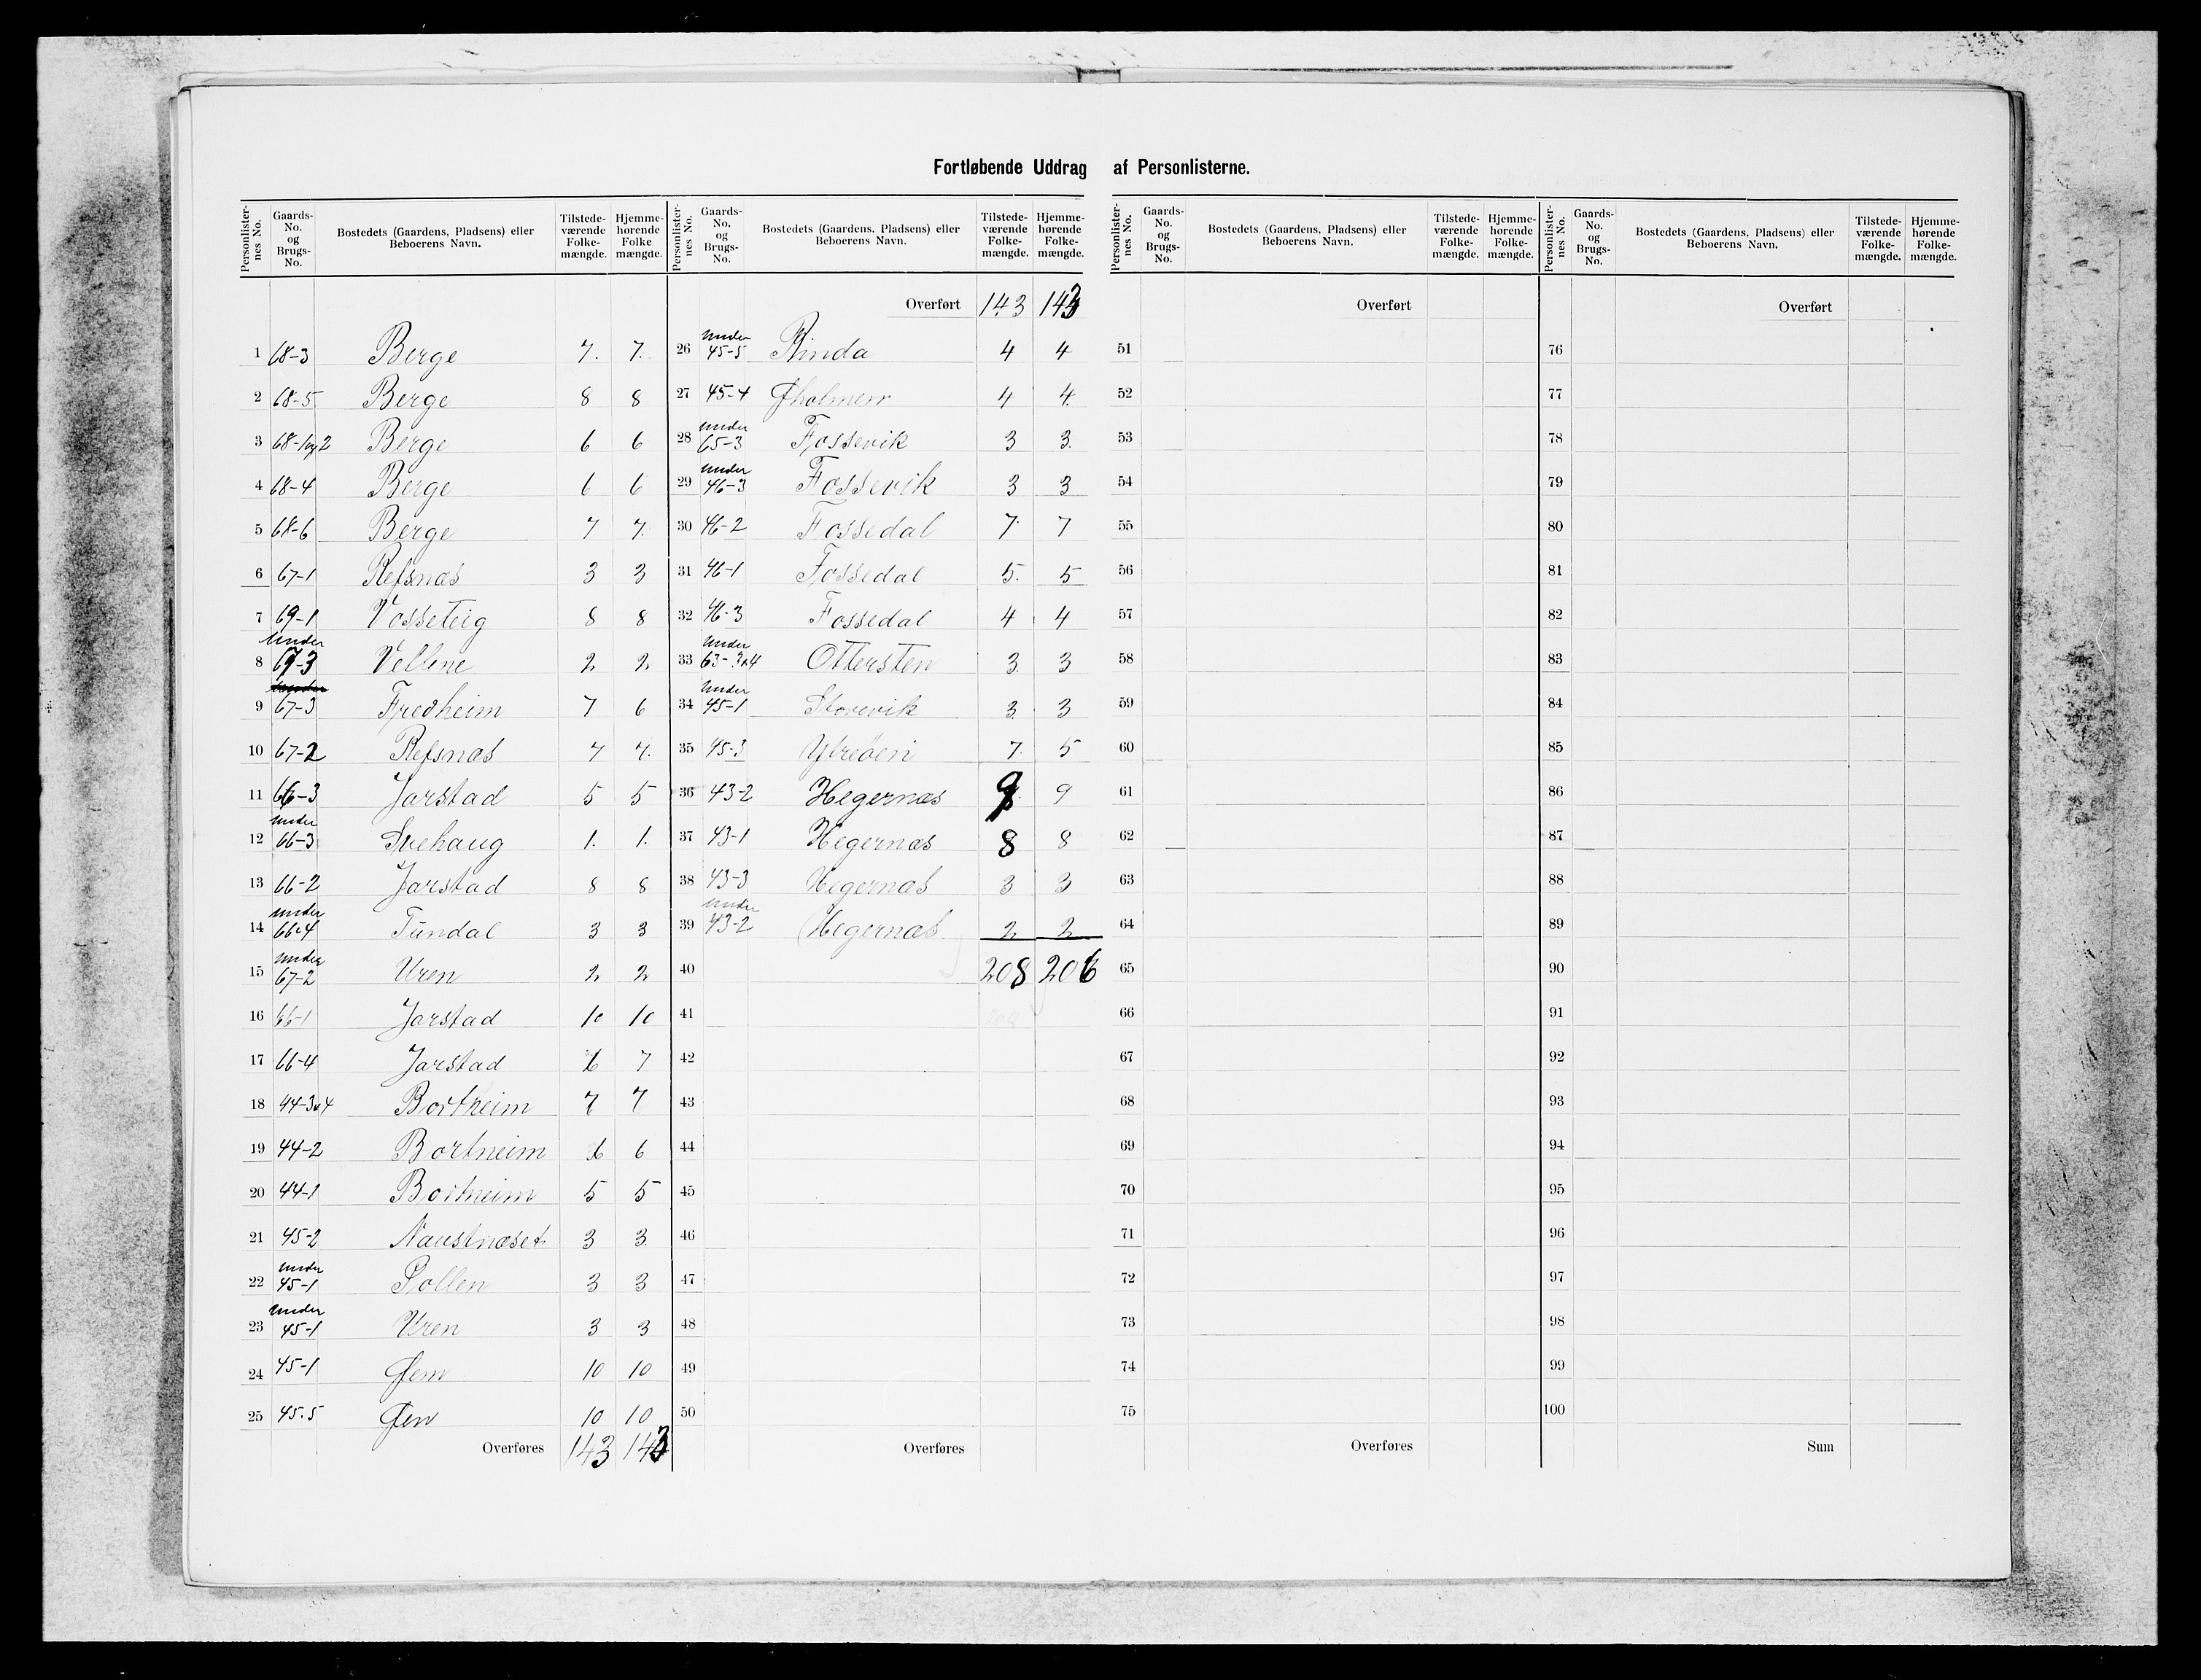 Fortløbende Uddrag af Personlisterne.
Personlister-nes No. Gaards-No. og Brugs-No. Bostedets (Gaardens, Pladsens) eller Beboerens Navn. Tilstede-værende Folke-mængde. Hjemme-hørende Folke mængde.
1 68-3 Berge 7. 7.
2 68-5 Berge 8 8
3 68-1og2 Berge 6 6
4 68-4 Berge 6 6
5 68-6 Berge 7 7.
6 67-1 Refsnæs 3 3
7 69-1 Vosseteig 8 8
8 Under 67-3 Vellene 2 2
9 67-3 Fredheim 7 6
10 67-2 Refsnæs 7 7.
11 66-3 Jarstad 5 5
12 under 66-3 Svehaug 1. 1.
13 66-2 Jarstad 8 8
14 under 66-4 Tundal 3 3
15 under 67-2 Uren 2 2
16 66-1 Jarstad 10 10
17 66-4 Jarstad 6 7
18 44-3&4 Bortheim 7 7
19 44-2 Bortneim 6 6
20 44-1 Bortneim 5 5
21 45-2 Naustnæset 3 3
22 under 45-1 Pollen 3 3
23 under 45-1 Uren 3 3
24 45-1 Øen 10 10
25 45.5 Øen 10 10
Overføres 143 143
Personlister-nes No. Gaards-No. og Brugs-No. Bostedets (Gaardens, Pladsens) eller Beboerens Navn. Tilstede-værende Folke-mængde. Hjemme-hørende Folke-mængde.
Overført 143 143
26 under 45-5 Rinda 4 4
27 45-4 Øholmen 4 4.
28 under 65-3 Fossevik 3 3.
29 under 46-3 Fossevik 3 3
30 46-2 Fossedal 7 7
31 46-1 Fossedal 5. 5
32 46-3 Fossedal 4 4
33 Under 63-3&4 Ottersten 3. 3
34 Under 45-1 Storevik 3. 3
35 45-3 Ytreöen 7. 5
36 43-2 Hegernæs 9 9
37 43-1 Hegernæs 8 8
38 43-3 Hegernæs 3 3
39 under 43-2 Hegernæs 2 2
40 208 206
41
42
43
44
45
46
47
48
49
50
Overføres
Personlister-nes No. Gaards-No. og Brugs-No. Bostedets (Gaardens, Pladsens) eller Beboerens Navn. Tilstede-værende Folke-mængde. Hjemme-hørende Folke-mængde.
Overført
51
52
53
54
55
56
57
58
59
60
61
62
63
64
65
66
67
68
69
70
71
72
73
74
75
Overføres
Personlister-nes No. Gaards-No. og Brugs-No. Bostedets (Gaardens, Pladsens) eller Beboerens Navn. Tilstede-værende Folke-mængde. Hjemme-hørende Folke-mængde.
Overført
76
77
78
79
80
81
82
83
84
85
86
87
88
89
90
91
92
93
94
95
96
97
98
99
100
Sum